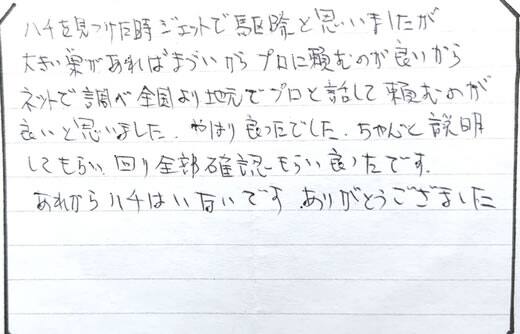 ハチを見つけた時ジェットで駆除と思いいましたが
大きい巣があればまづいから プロに頼むのが良いから
ネットで調べ全国より地元でプロと話して頼むのが
良いと思いました。やはり良ったでした。ちゃんと説明
してもらい 回り全部確認もらい良ったです。
あれからハチはいないです ありがとうございました